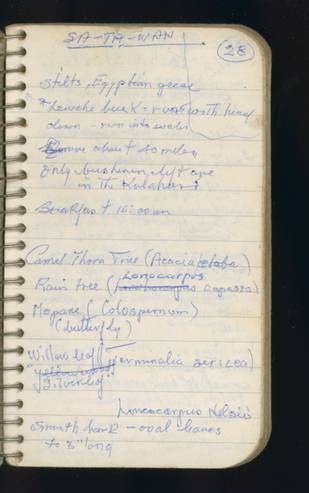 SA-TA-WAN
28
stilts, Egyptian geese
Lewche buck - run with head
down - run into water
about 40 miles
Only bushmen left are
in the Kalahari
Breakfast 10:00 am
Camel Thorn Tree (Acacia
Lonocarpos
Rain tree ( capassa)
Mopane (Colospernum)
(butterfly)
Willow leaf Terminalia serilea)
Silverleaf
Loncocarpus Nelsii
Smooth bark - oval leaves
to 3" long